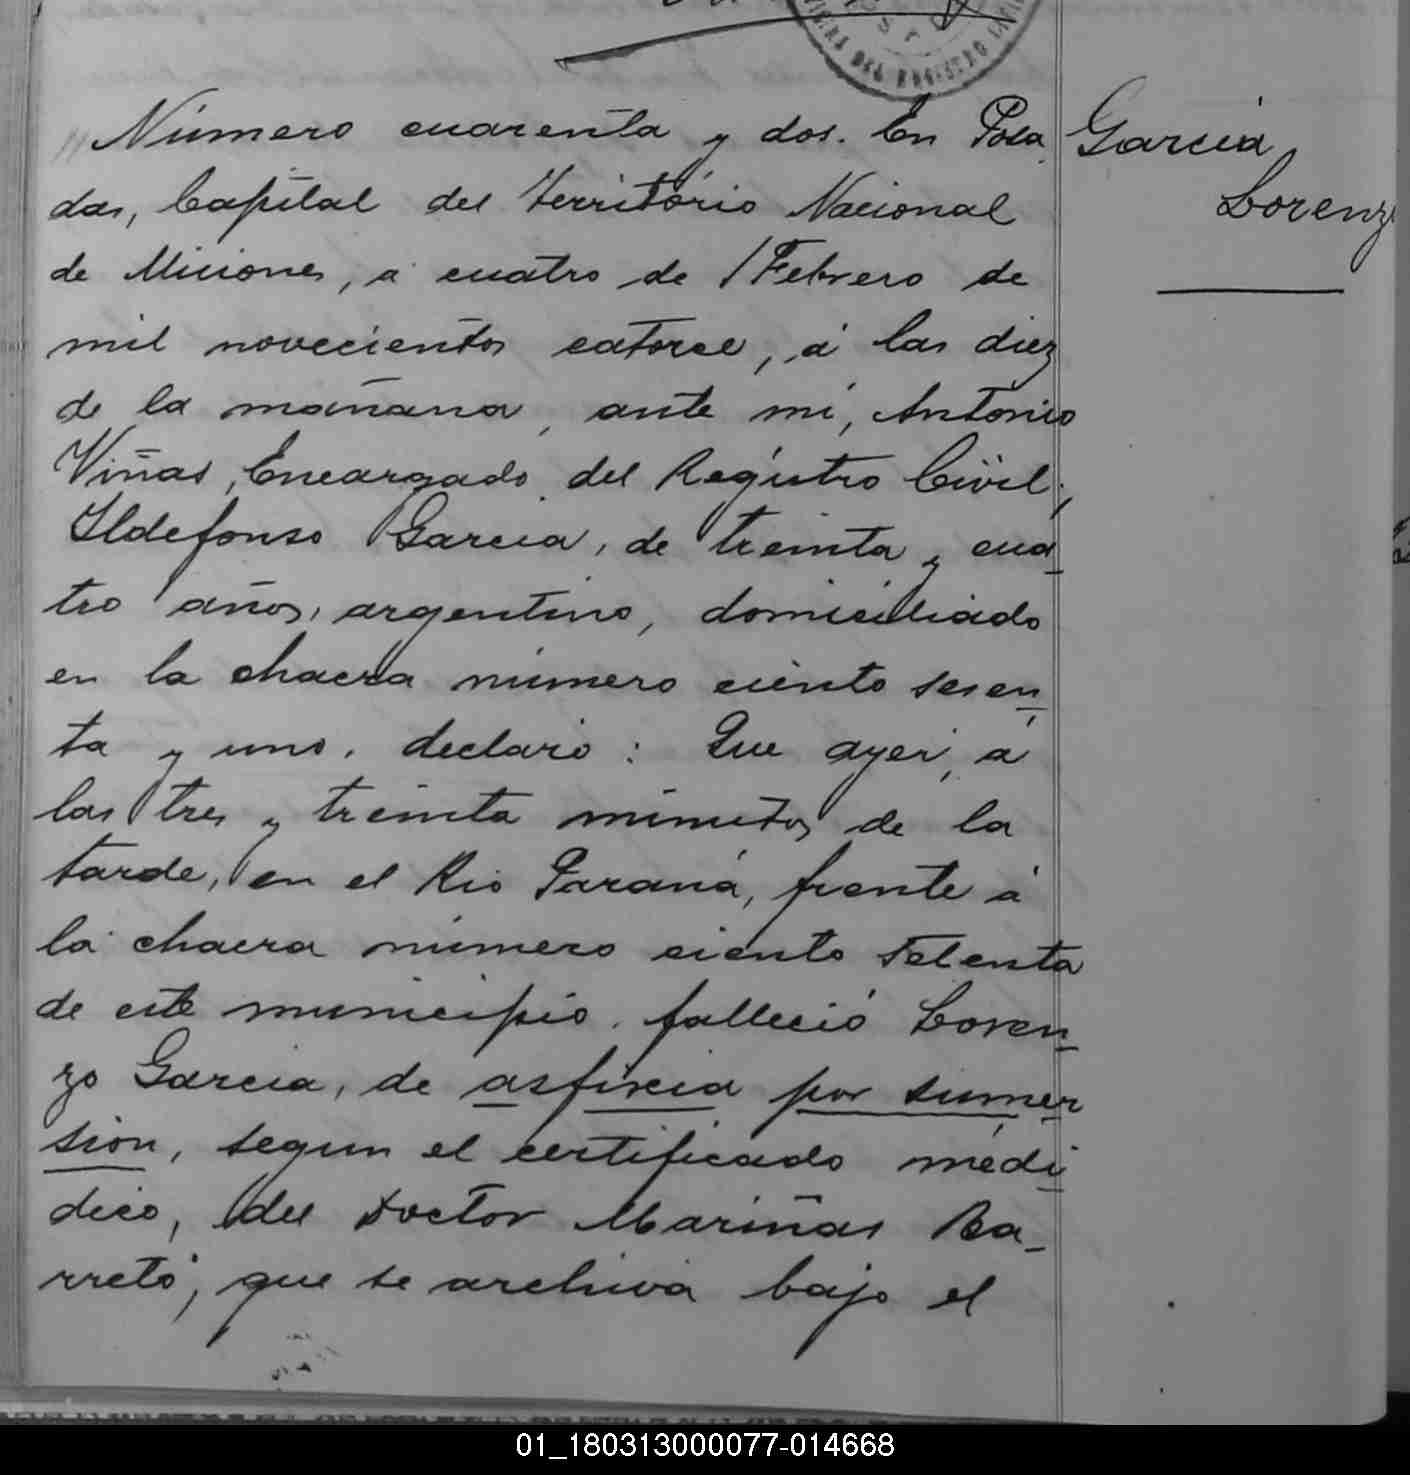 DEL REGISTRO CIVIL
Número cuarenta y dos. En Posa
das, Capital del Territorio Nacional
de Misiones, á cuatro de Febrero de
mil novecientos catorce, á las diez
de la mañana, ante mi, Antonio
Viñas, Encargado del Registro Civil;
Ildefonso Garcia, de treinta y cua-
tro años, argentino, domiciliado
en la chacra número ciento sesen-
ta y uno, declaró: Que ayer, á
las tres y treinta minutos de la
tarde, en el Rio Paraná, frente á
la chacra número ciento setenta
de este municipio, falleció Loren-
zo Garcia, de asfixcia por sumer
sion, segun el certificado médi-
dico, del Doctor Mariñas Ba-
rreto, que se archiva bajo el
Garcia
Lorenz
01_180313000077-014668